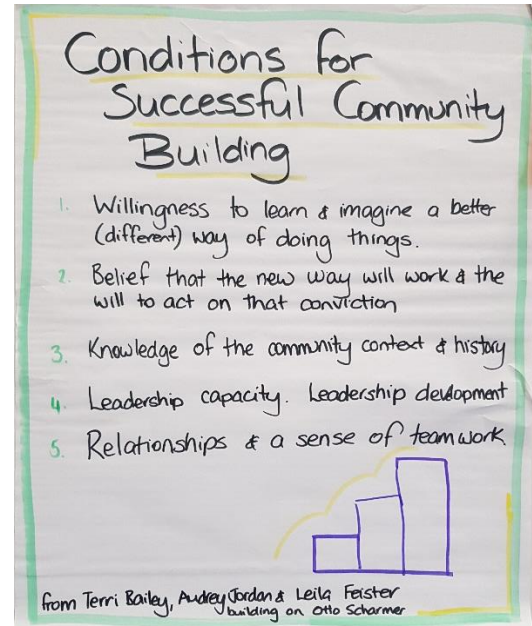 Conditions for
Successful Community
Building
1. Willingness to learn & imagine a better
(different) way of doing things.
2. Belief that the new way will work & the
will to act on that conviction
3. Knowledge of the community context & history
4. Leadership capacity. Leadership development
5. Relationships & a sense of teamwork
from Terri Bailey, Audrey Jordan & Leila Feister
building on Otto Scharmer